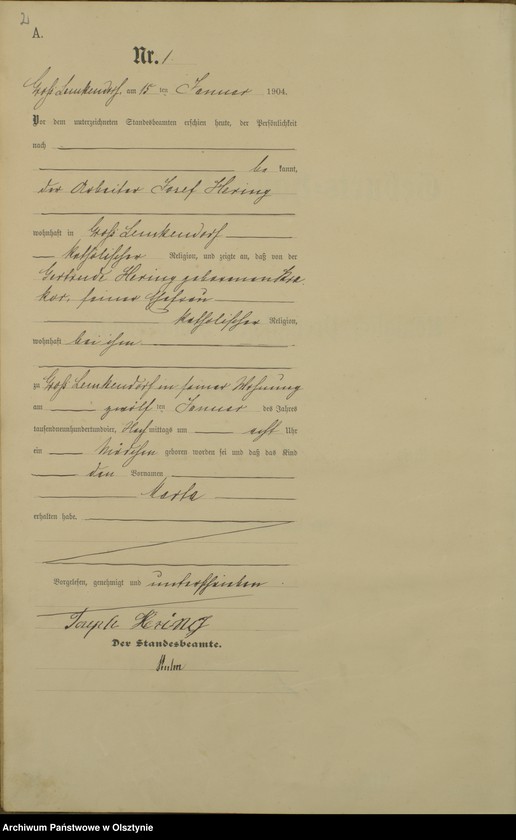 2
A.
Nr. 1
Groß Lemkendorf am 15 ten Januar 1904.
Vor dem unterzeichneten Standesbeamten erschien heute, der Persönlichkeit
nach
be kannt,
der Arbeiter Josef Hering
wohnhaft in Groß Lemkendorf
katholischer Religion, und zeigte an, daß von der
Gertrude Hering geborenen
seiner Ehefrau
katholischer Religion,
wohnhaft bei ihm
zu Groß Lemkendorf in seiner Wohnung
am zwölf ten Januar des Jahres
tausendneunhundertundvier, Nach mittags um acht Uhr
ein Mädchen geboren worden sei und daß das Kind
den Vornamen
Martha
erhalten habe.
Vorgelesen, genehmigt und unterschrieben
Hering
Der Standesbeamte.
Archiwum Państwowe w Olsztynie